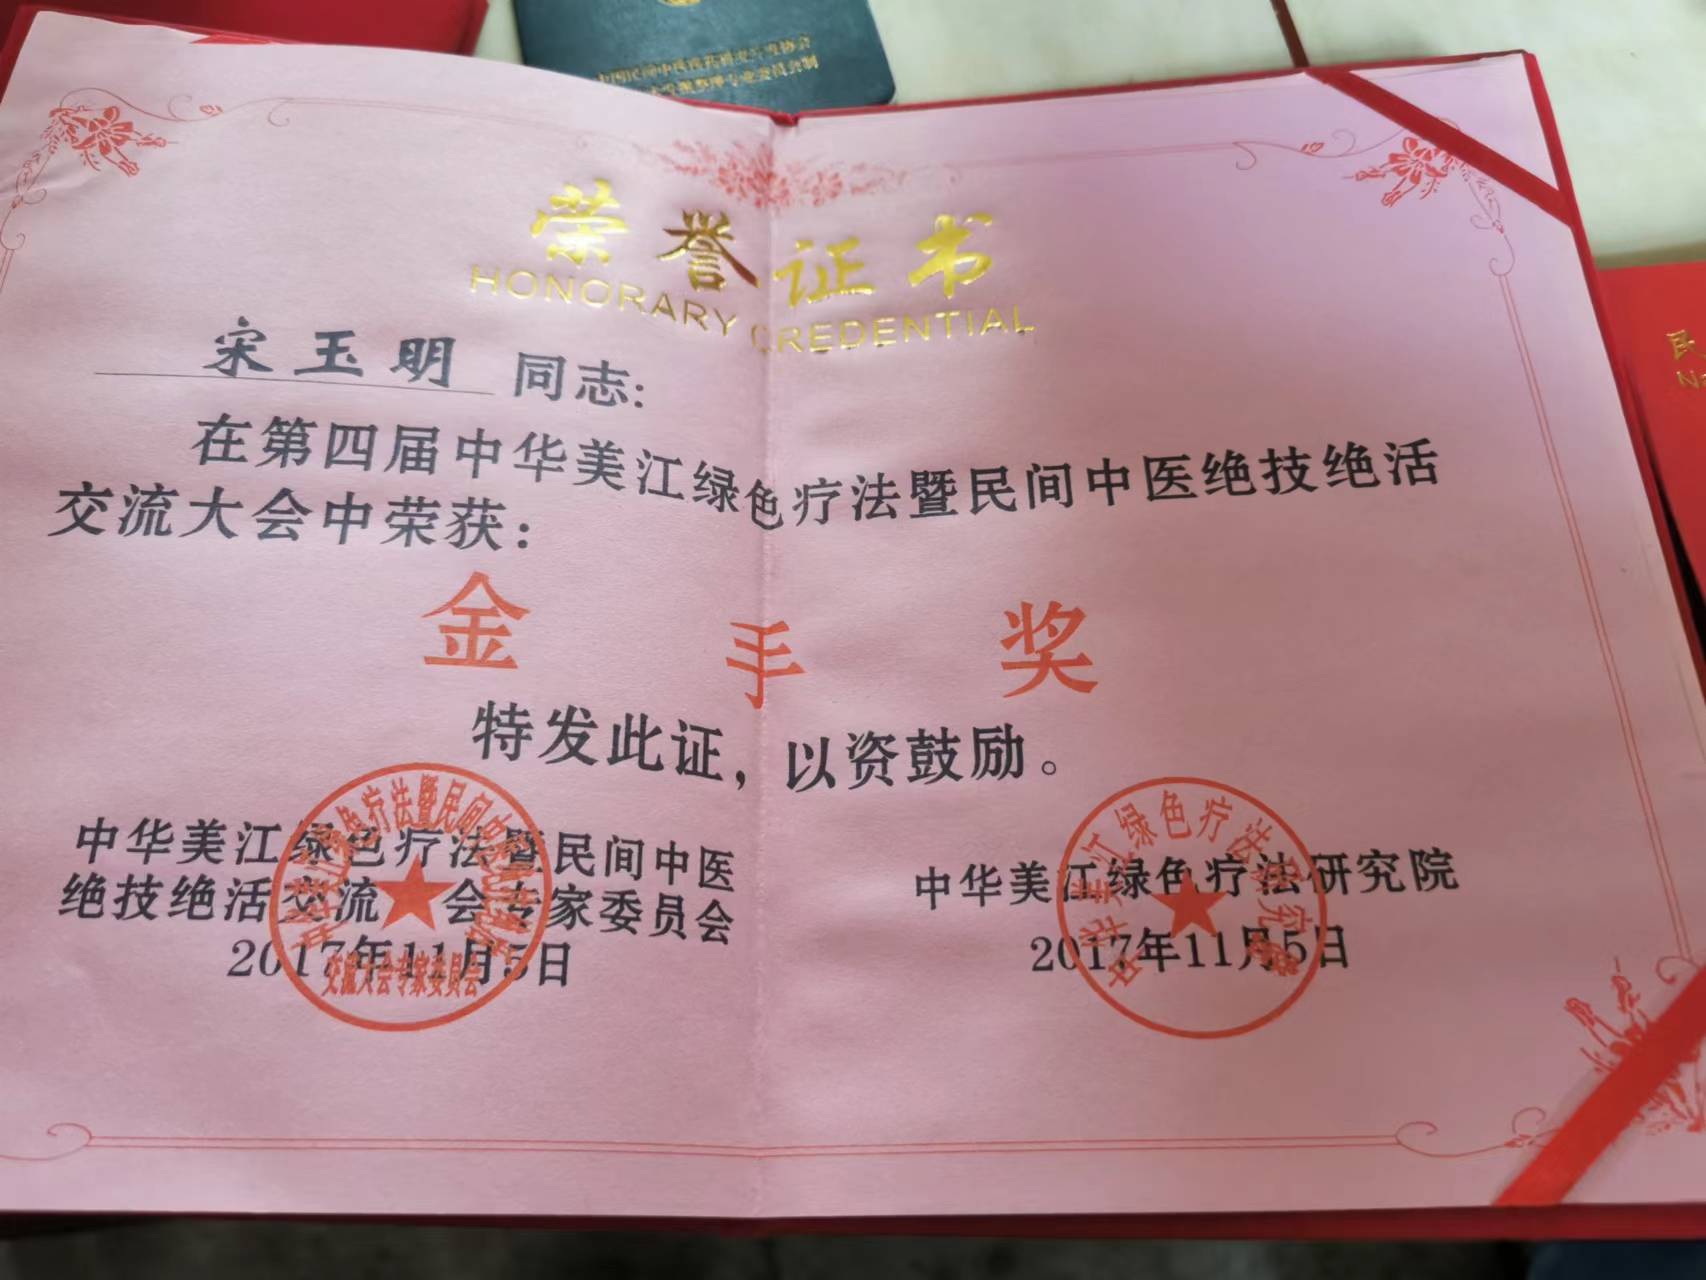 荣誉证书
HONORARY CREDENTIAL
宋玉明 同志:
在第四届中华美江绿色疗法暨民间中医绝技绝活
交流大会中荣获:
金手奖
特发此证，以资鼓励。
中华美江绿色疗法暨民间中医
绝技绝活交流 会专家委员会
2017年11月5日
交流大会专家委员会
中华美江绿色疗法研究院
2017年11月5日
中华美江绿色疗法研究院
民
Na